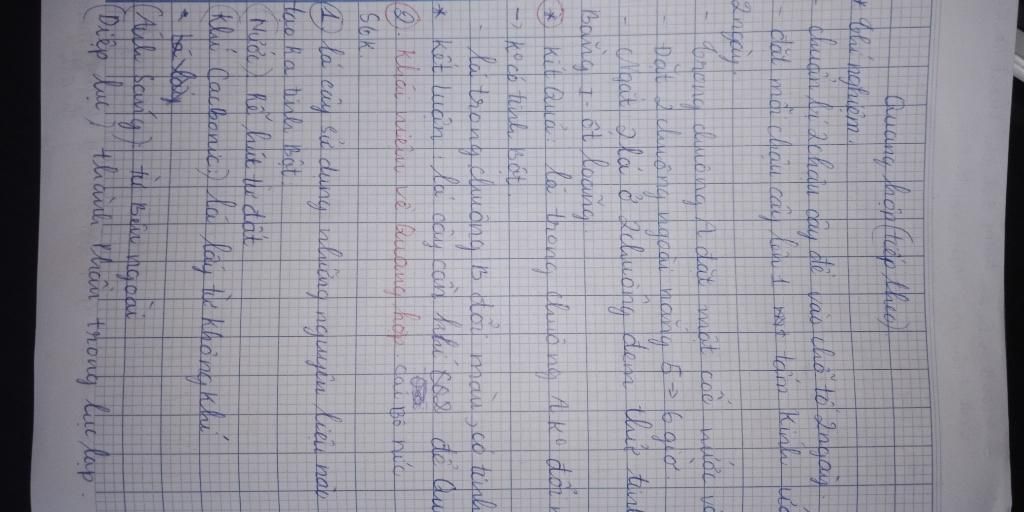 Quang hợp (tiếp theo)
* Thí nghiệm.
- chuẩn bị 2 chậu cây để vào chỗ tối 2 ngày.
- đặt mỗi chậu cây lên 1 tấm kính
2 ngày.
- Trong chuông A đặt một cốc nước
- Đặt 2 chuông ngoài nắng 5 -> 6 giờ.
- Ngắt 2 lá ở 2 chuông đem thử tinh
Bằng I-ốt loãng.
* kết Quả: lá trong chuông A ko đổi
-> ko có tinh Bột.
- lá trong chuông B đổi màu, có tinh
* kết luận: lá cây cần khí để
2. Khái niệm về Quang hợp.
Sgk.
1 lá cây sử dụng những nguyên liệu nào
tạo ra tinh Bột.
(Nước) Rễ hút từ đất
(khí Cacbonic) lá lấy từ không khí
(Ánh Sáng) từ Bên ngoài
(Diệp lục) thành phần trong lục lạp.